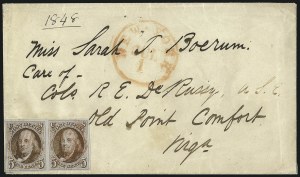 1848
Miss Sarah J. Boerum.
Care of
Colo. R. E. De Russy, U.S.E.
Old Point Comfort
Virga
5 5
5 5